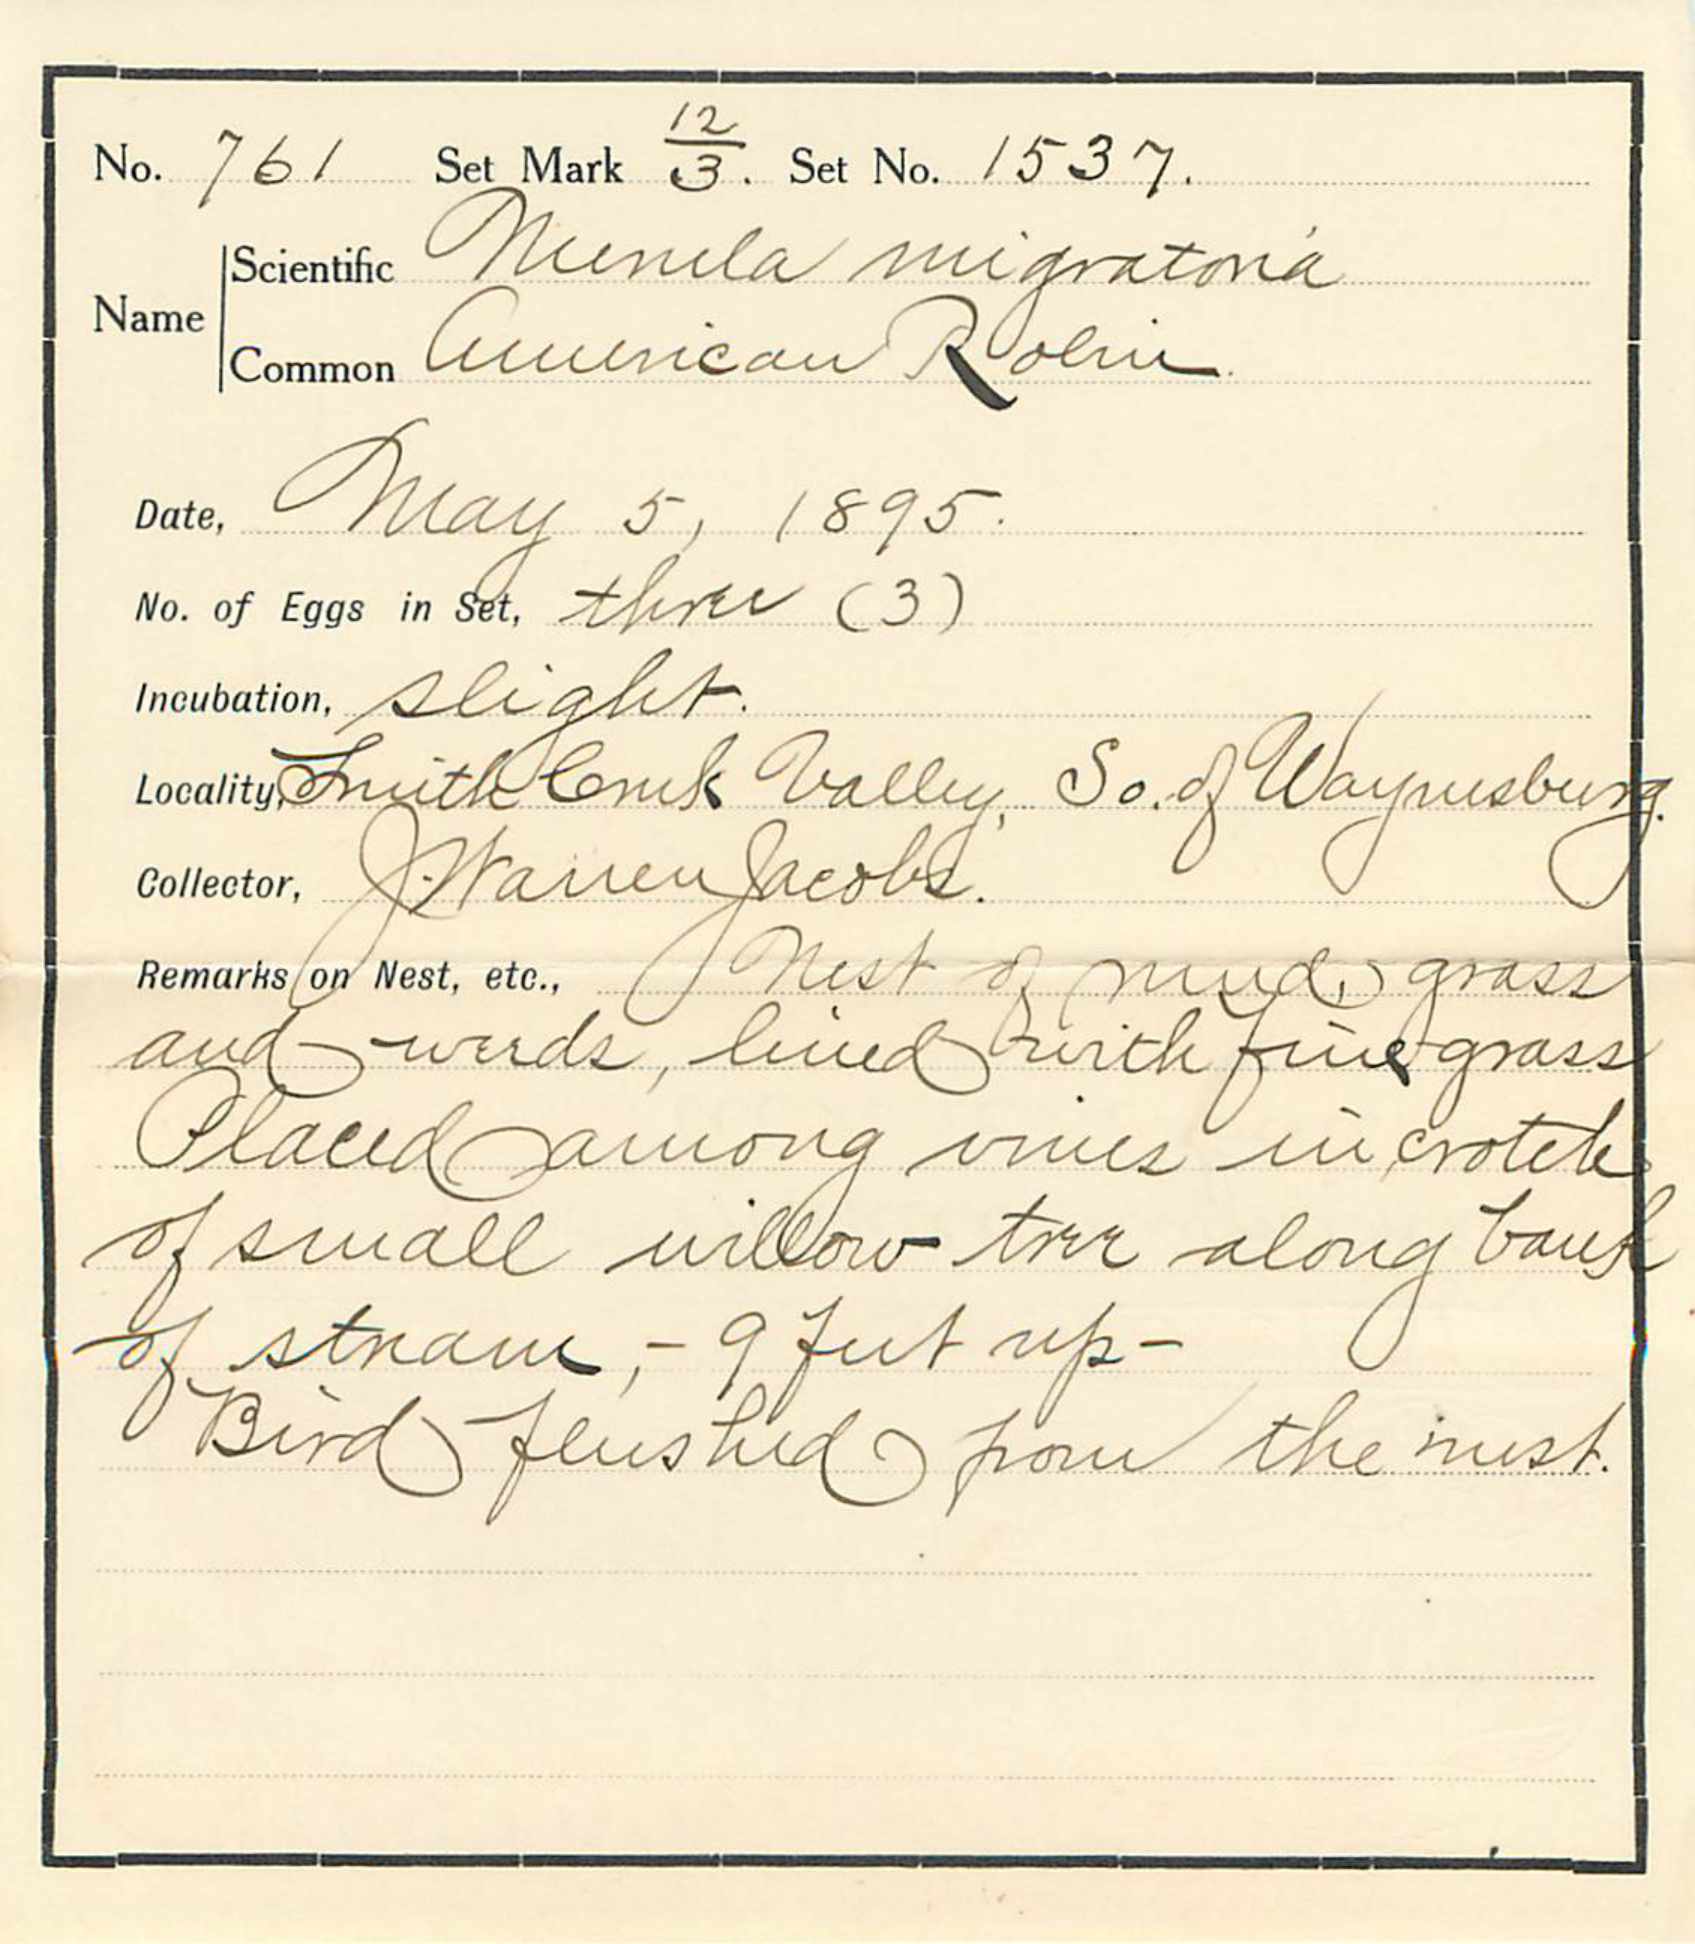 No. 761 Set Mark 12/3. Set No. 1537.
Name Scientific Merula migratoria
Common American Robin.
Date, May 5, 1895.
No. of Eggs in Set, three (3)
Incubation, slight.
Locality, Smith Creek Valley, So. of Waynesburg.
Collector, J. Warren Jacobs.
Remarks on Nest, etc., Nest of mud, grass
and weeds, lined with fine grass
Placed among vines in crotch
of small willow tree along bank
of stream, - 9 feet up -
Bird flushed from the nest.